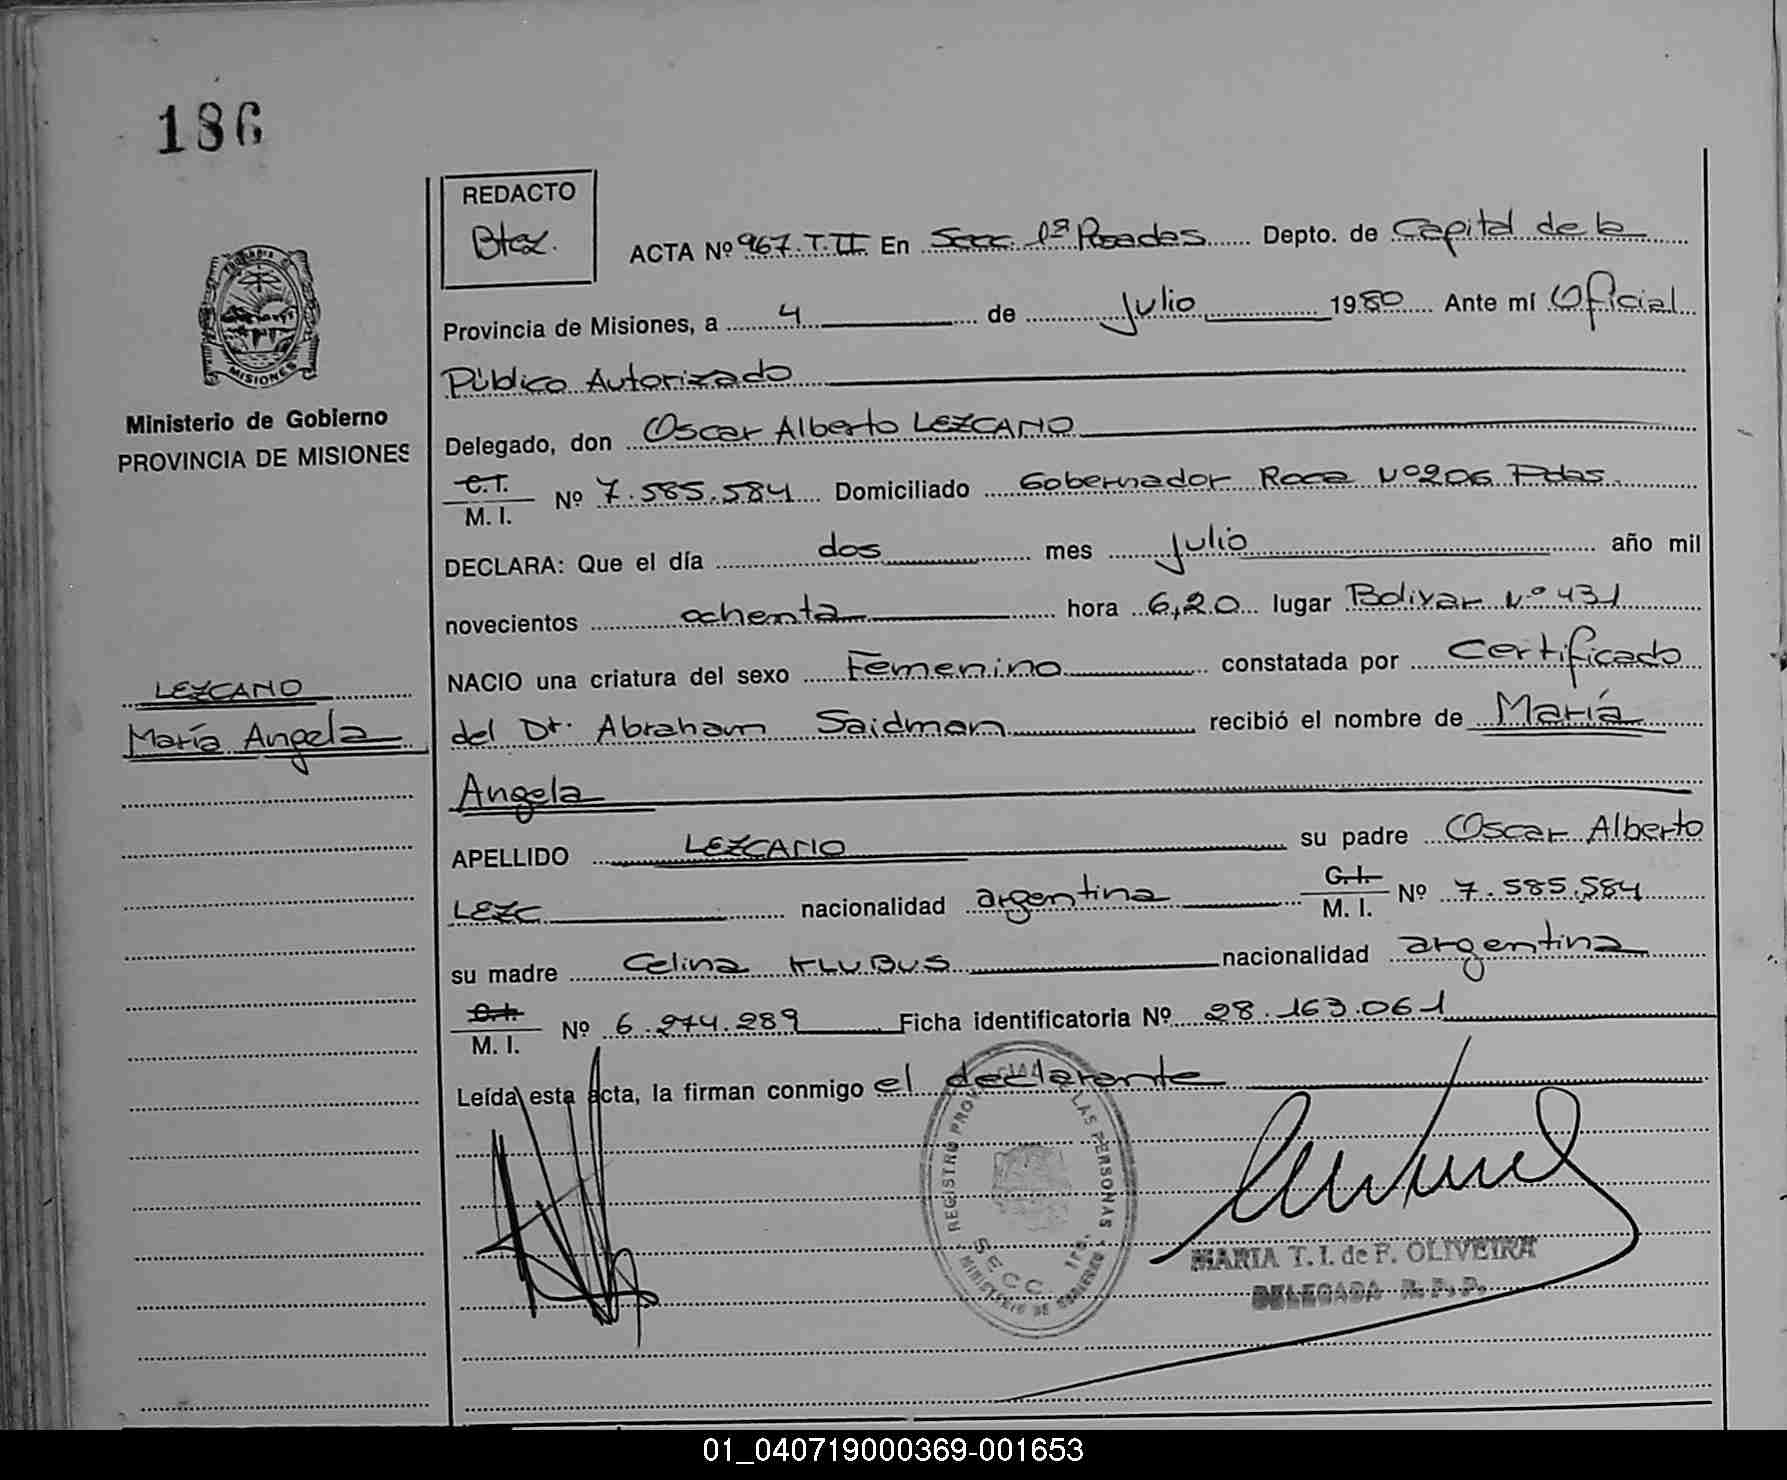 186
REDACTO
Btez.
ACTA Nº 967. T. II En Secc. 1ª Posadas Depto. de Capital de la
Provincia de Misiones, a 4 de Julio 1980 Ante mí Oficial
Público Autorizado
Delegado, don Oscar Alberto LEZCANO
C.I.
M. I. Nº 7.585.584 Domiciliado Gobernador Roca Nº 206 Pdas.
DECLARA: Que el día dos mes Julio año mil
novecientos ochenta hora 6,20 lugar Bolivar Nº 431
NACIO una criatura del sexo Femenino constatada por Certificado
del Dr. Abraham Saidman recibió el nombre de María
Angela
APELLIDO LEZCANO su padre Oscar Alberto
LEZC. nacionalidad argentina C.I.
M. I. Nº 7.585.584
su madre Celina KLUBUS nacionalidad argentina
C.I.
M. I. Nº 6.274.289 Ficha identificatoria Nº 28.163.061
Leída esta acta, la firman conmigo el declarante
MISIONES
Ministerio de Gobierno
PROVINCIA DE MISIONES
LEZCANO
María Angela
REGISTRO PROVINCIAL DE LAS PERSONAS
SECC. 1ra.
MINISTERIO DE GOBIERNO
MARIA T. I. de F. OLIVEIRA
DELEGADA R. P. P.
01_040719000369-001653